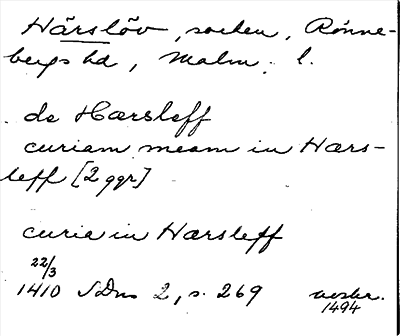 Härslöv, socken, Rönne-
bergs hd, Malm. l.
de Hærsleff
curiam meam in Hærs-
leff [2 ggr]
curia in Hærsleff
22/3
1410 SDns 2, s. 269 avskr.
1494